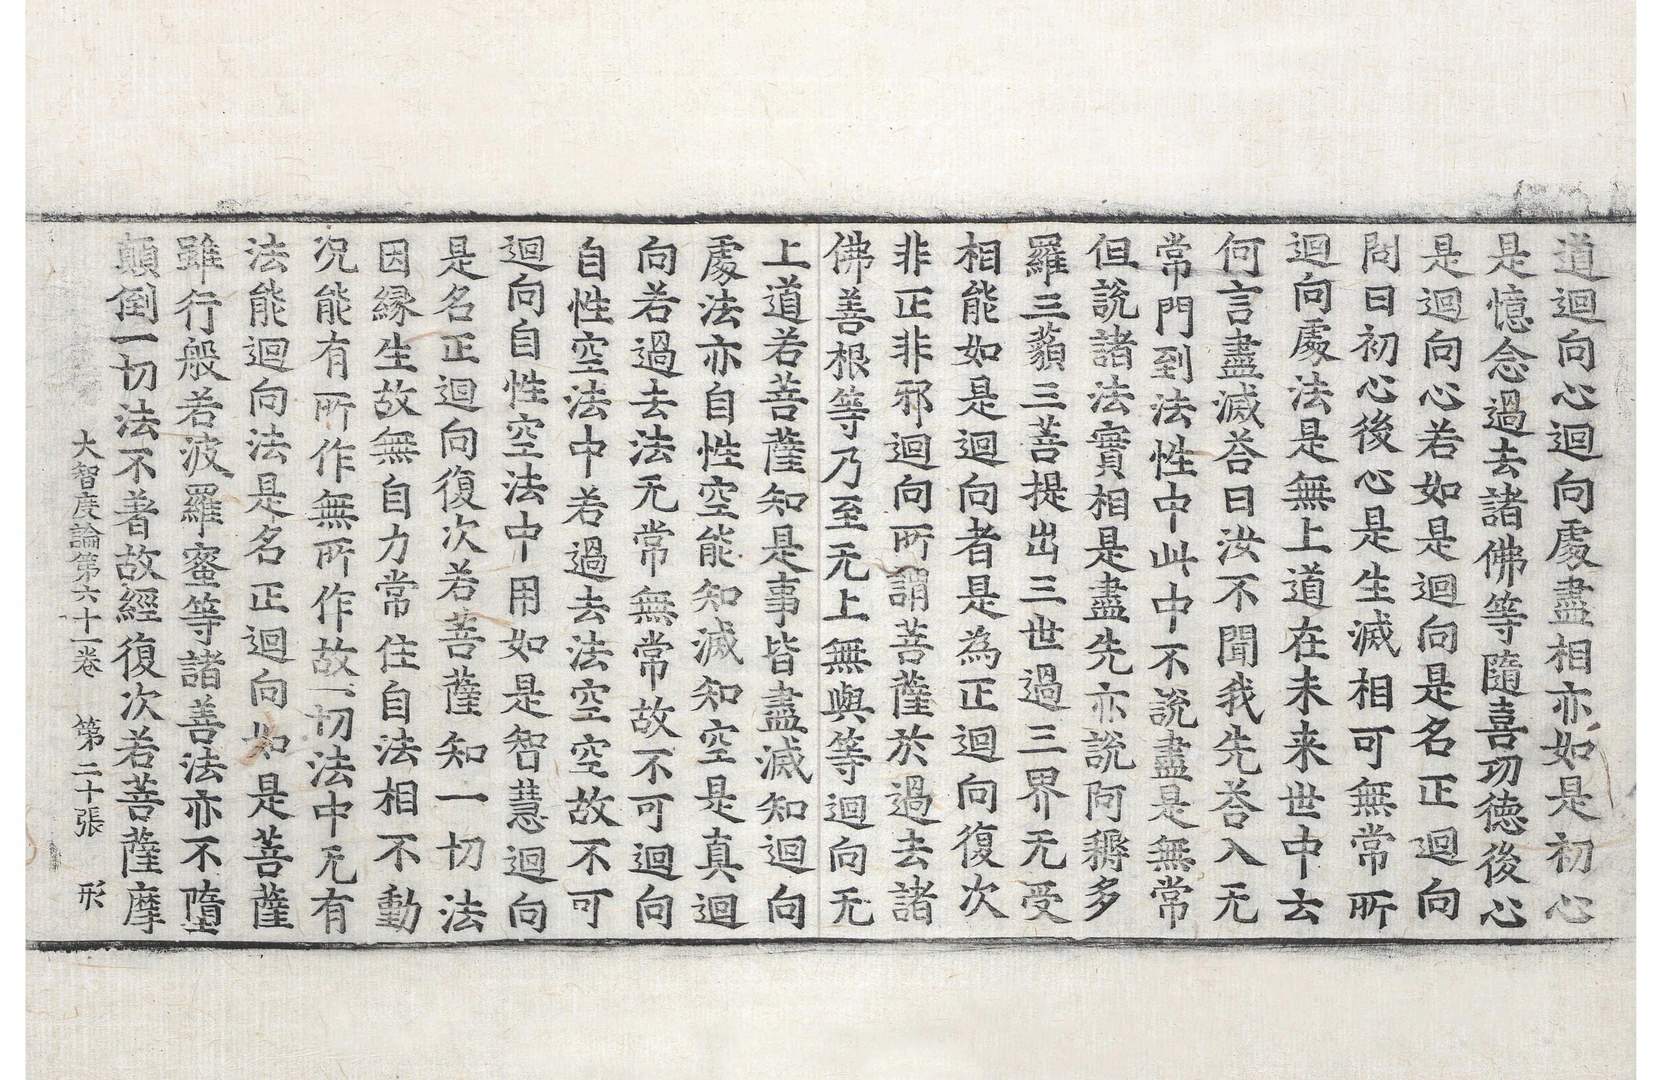 道迴向心迴向處盡相亦如是初心
是憶念過去諸佛等隨喜功德後心
是迴向心若如是迴向是名正迴向
問曰初心後心是生滅相可無常所
迴向處法是無上道在未来世中去
何言盡滅荅曰汝不聞我先荅入无
常門到法性中此中不說盡是無常
但說諸法實相是盡先亦說阿耨多
羅三藐三菩提出三世過三界无受
相能如是迴向者是為正迴向復次
非正非邪迴向所謂菩薩於過去諸
佛善根等乃至无上無與等迴向无
上道若菩薩知是事皆盡滅知迴向
處法亦自性空能知滅知空是真迴
向若過去法无常無常故不可迴向
自性空法中若過去法空空故不可
迴向自性空法中用如是智慧迴向
是名正迴向復次若菩薩知一切法
因緣生故無自力常住自法相不動
况能有所作無所作故一切法中无有
法能迴向法是名正迴向如是菩薩
雖行般若波羅蜜等諸善法亦不墮
顛倒一切法不著故經復次若菩薩摩
大智度論第六十一卷　第二十張　形